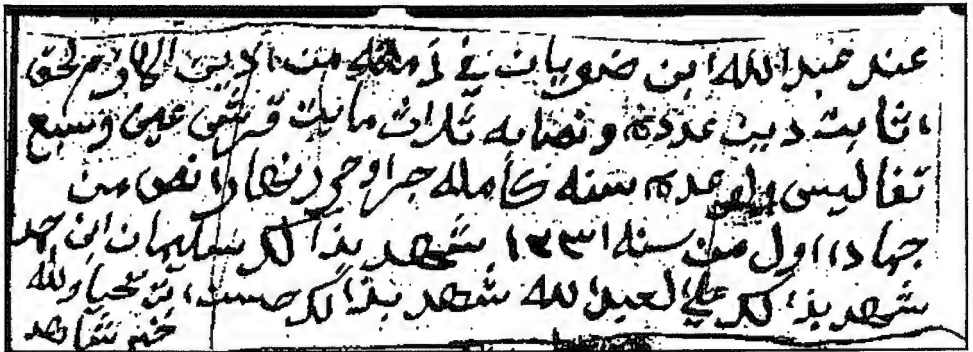 عند عبدالله ابن ضويان في ذمته من الدين اللازم لحق
اثابت دين عدده ونصابه ثلاث مايت قرش عين وسبع
تفاليس ولوعده سنه كامله جرا وحرر نهار انصف من
جماد ااول من سنه ١٢٣١ شهد بذالك سليمان ابن حمد
شهد بذالك علي العبدالله شهد بذالك حسن ابن يحيا والله
خير شاهد